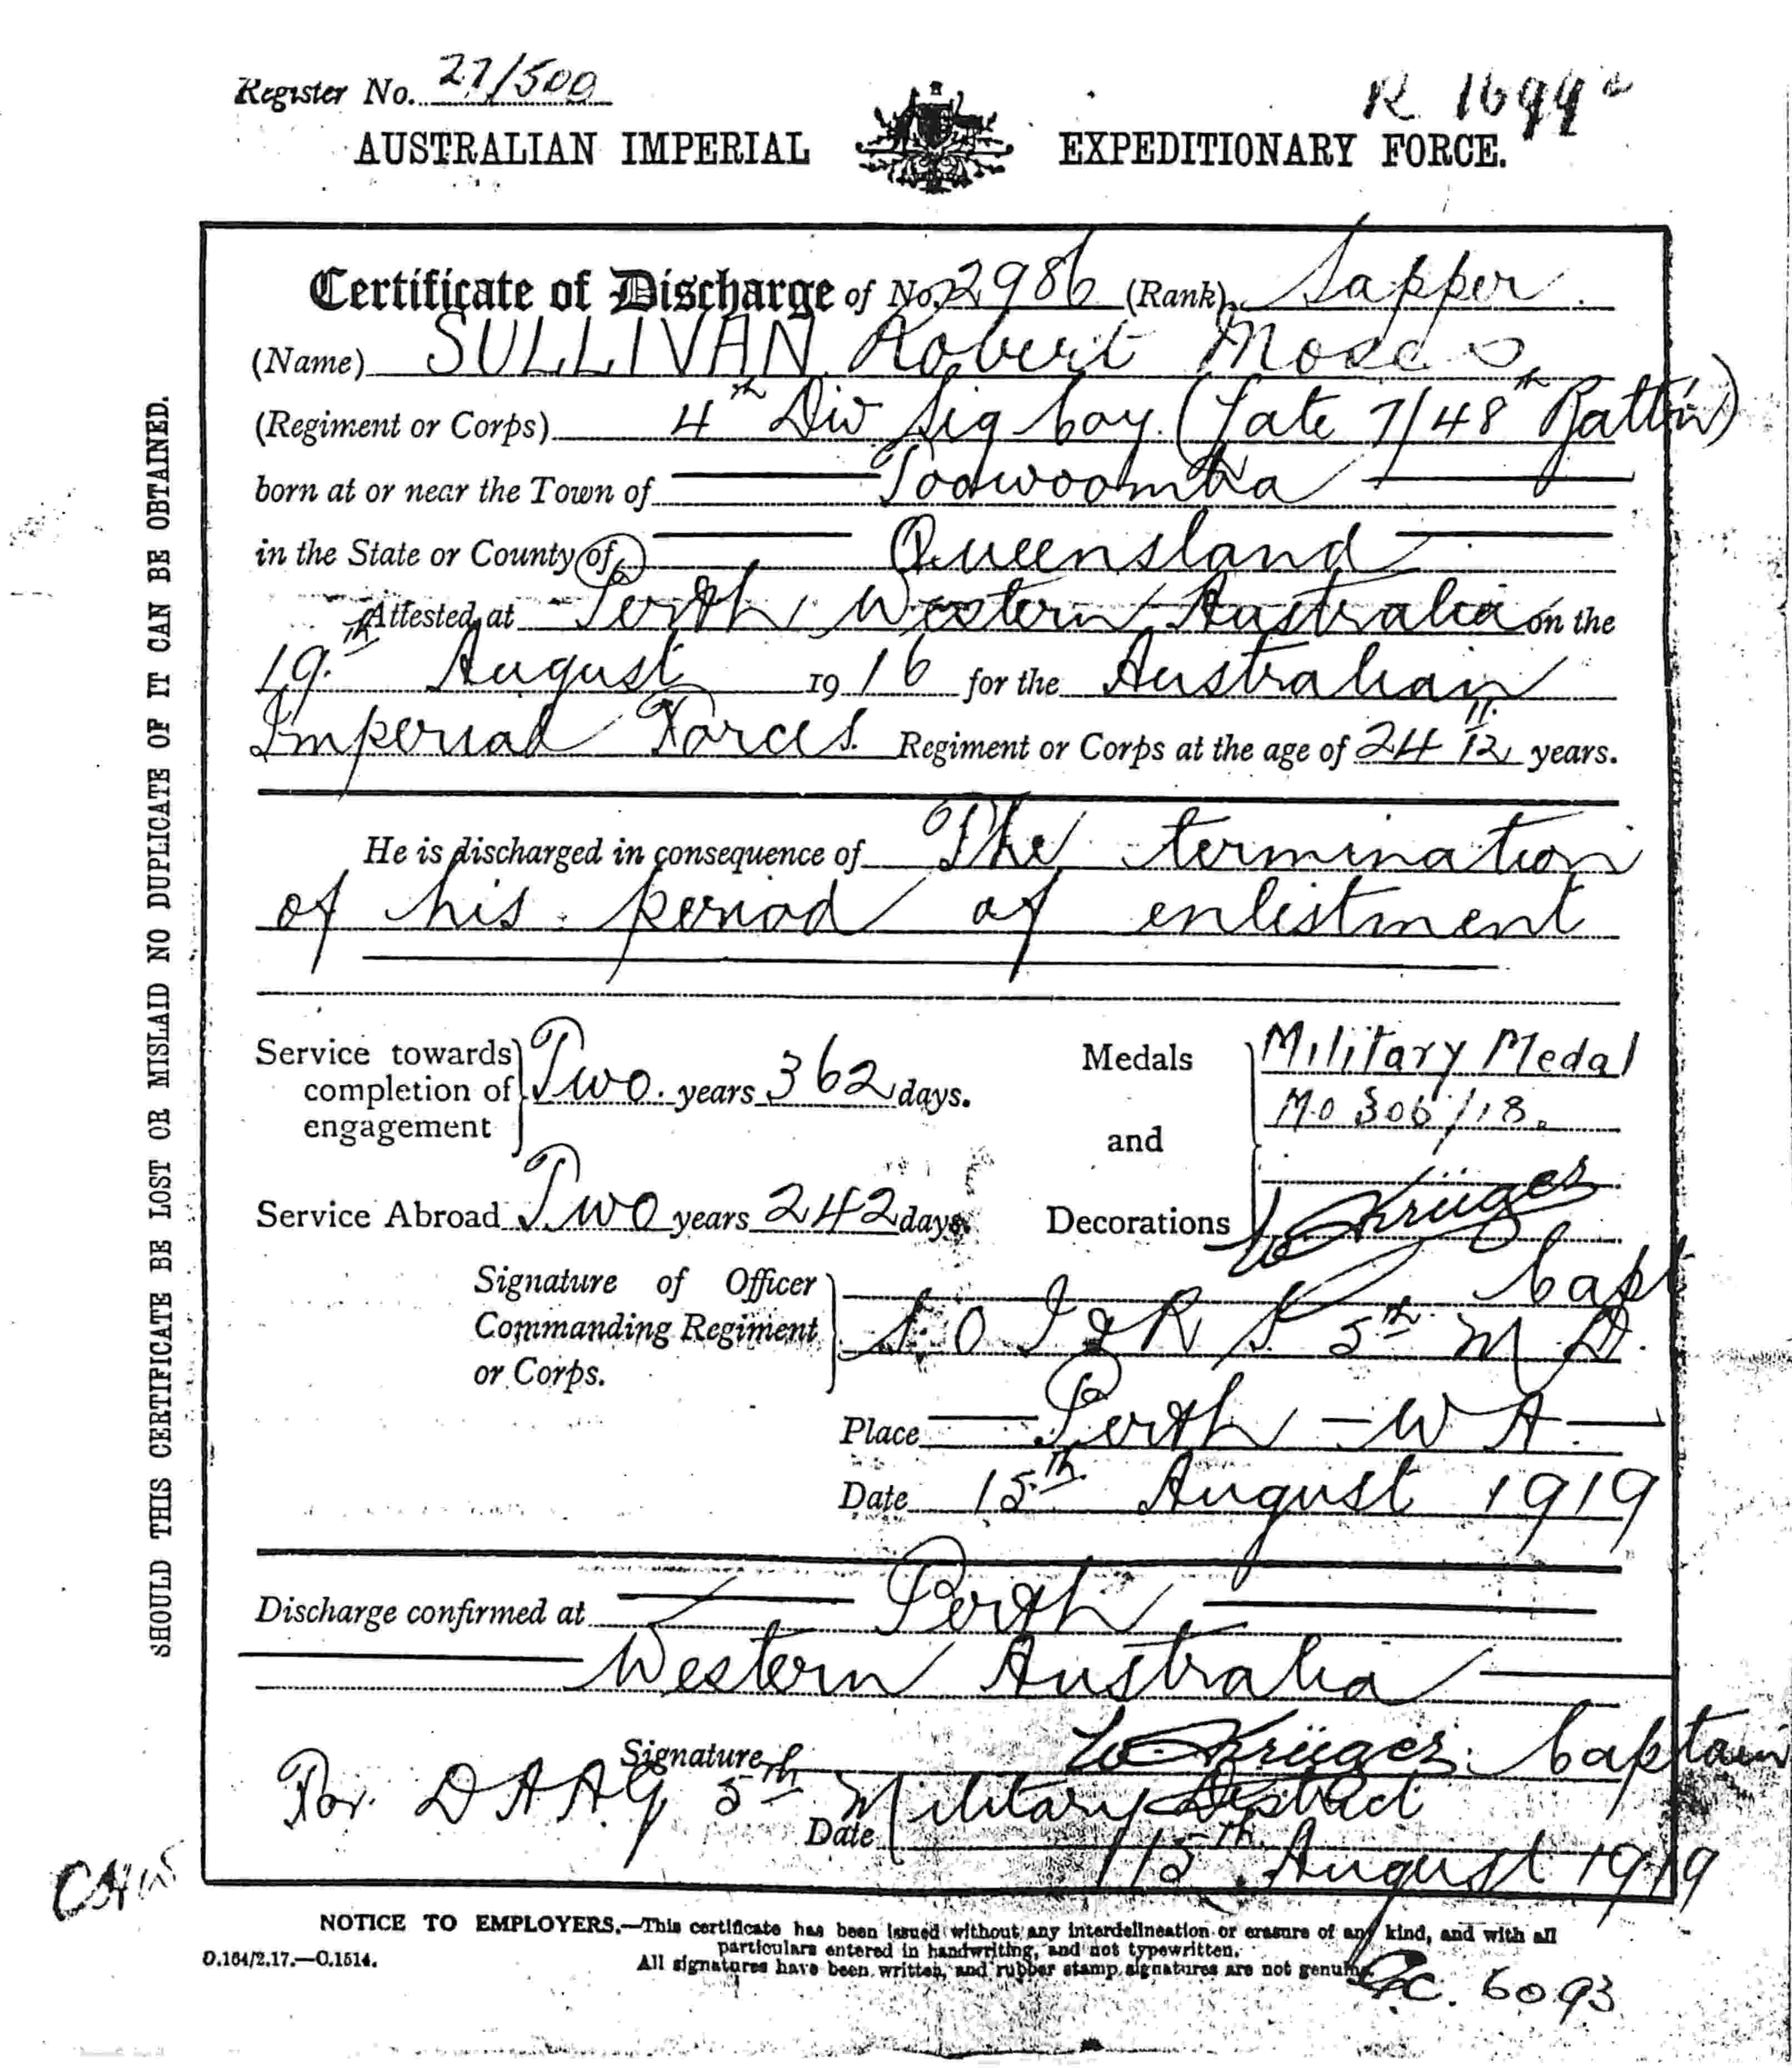 Register No. 27/500
R 1699
AUSTRALIAN IMPERIAL EXPEDITIONARY FORCE.
Certificate of Discharge of No. 2986 (Rank) Sapper
(Name) SULLIVAN Robert Moses
(Regiment or Corps) 4th Div Sig Coy. (Late 7/48th Battn)
born at or near the Town of Toowoomba
in the State or County of Queensland
Attested at Perth Western Australia on the
19th August 1916 for the Australian
Imperial Forces. Regiment or Corps at the age of 24 11/12 years.
He is discharged in consequence of The termination
of his period of enlistment
Service towards completion of engagement Two years 362 days.
Medals and Decorations Military Medal
M.O 306/18.
Service Abroad Two years 242 days.
W Krüger
Capt
Signature of Officer Commanding Regiment or Corps.
S.O I & R S 5th M.D.
Place Perth - W A
Date 15th August 1919
Discharge confirmed at Perth
Western Australia
Signature W Krüger. Captain
For. D A A G 5th Military District
Date 15th August 1919
NOTICE TO EMPLOYERS.—This certificate has been issued without any interdelineation or erasure of any kind, and with all
particulars entered in handwriting, and not typewritten.
All signatures have been written, and rubber stamp signatures are not genuine.
D.164/2.17.—C.1514.
6093
SHOULD THIS CERTIFICATE BE LOST OR MISLAID NO DUPLICATE OF IT CAN BE OBTAINED.